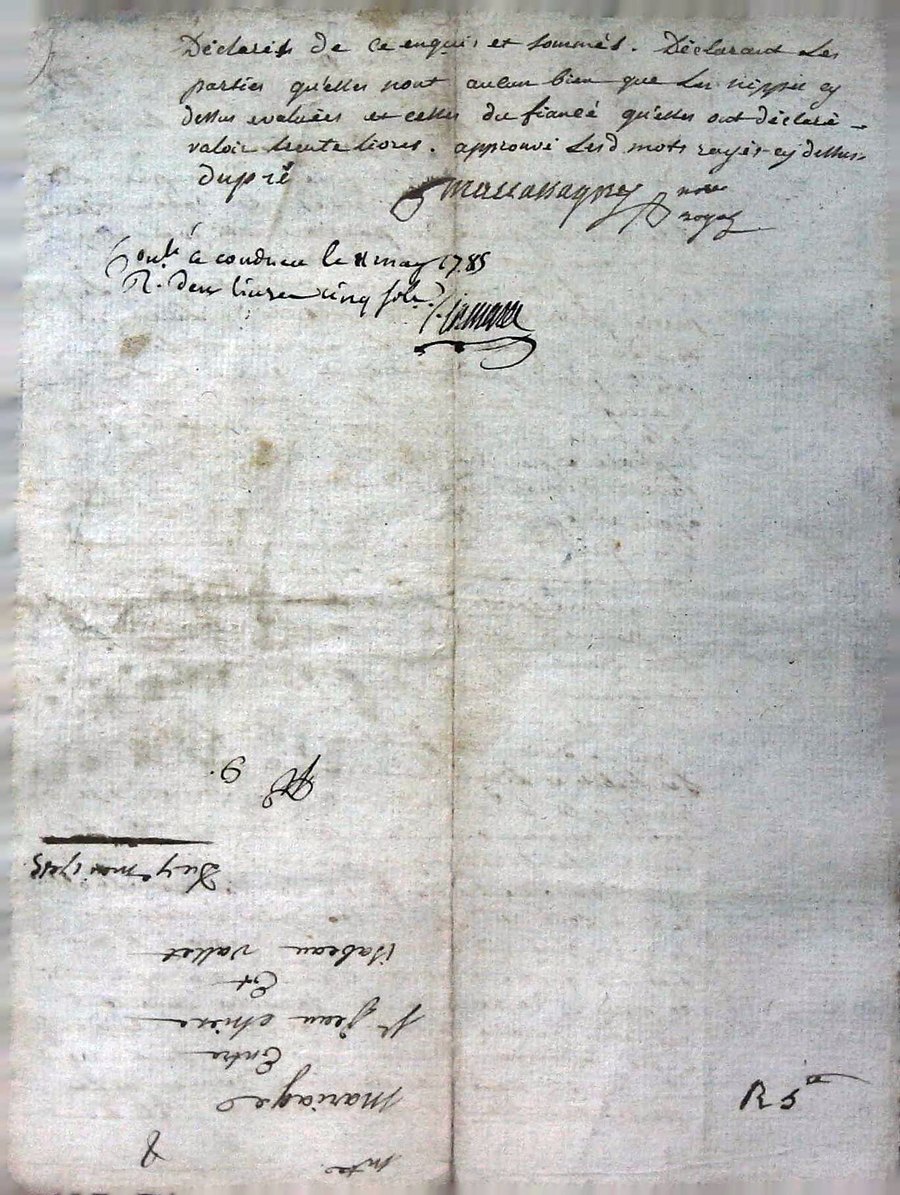 Déclarés de ce enquis et sommés. Déclarant les
parties qu'elles nont aucun bien que les nippes cy
dessus evaluées et celles du fiancé qu'elles ont déclaré
valoir trente livres. approuvé les mots rayés cy dessus
dupré
no.re
royal
Conlé à le 11 may 1785
R. deux livres cinq sols
R 5
9.
Du 7e mai 1785
Isabeau vallet
Et
Sr Jean
Entre
Mariage